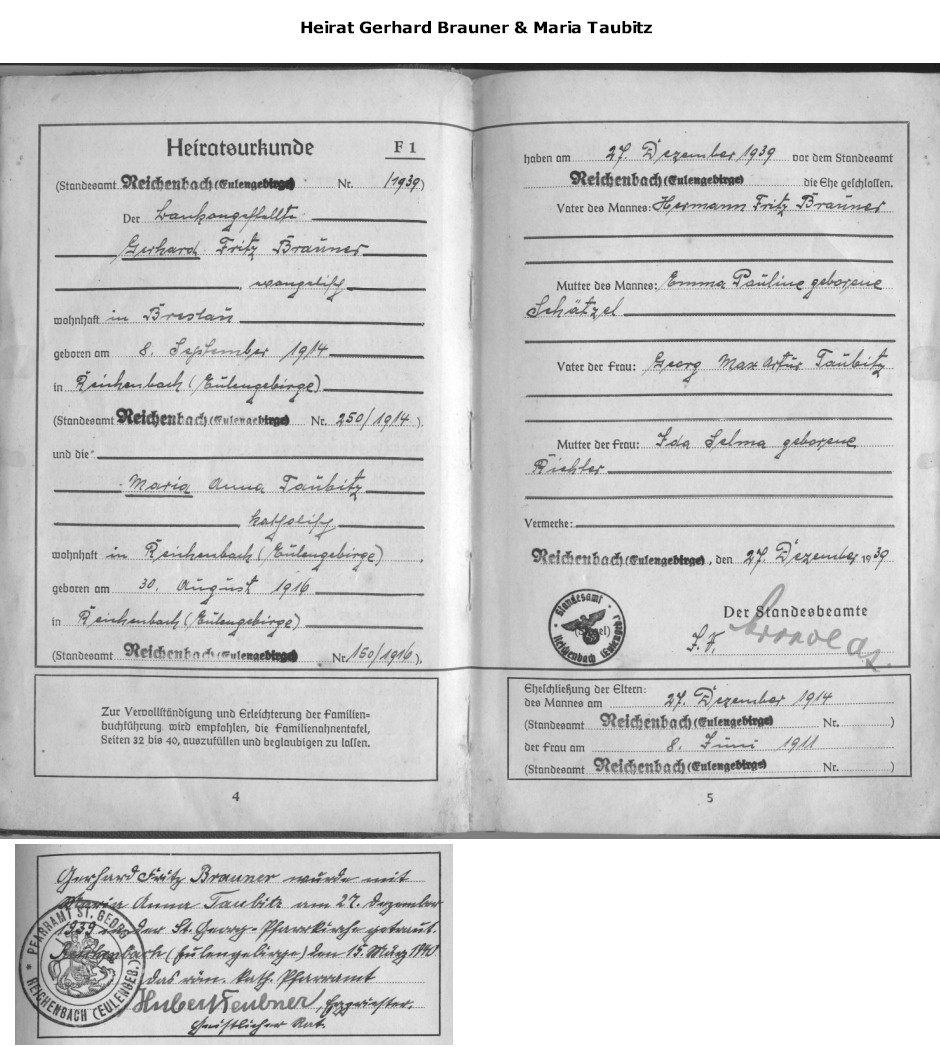 Heirat Gerhard Brauner & Maria Taubitz
Heiratsurkunde F 1
(Standesamt Reichenbach (Eulengebirge) Nr. /1939)
Der Bankangestellte
Gerhard Fritz Brauner
, evangelisch
wohnhaft in Breslau
geboren am 8. September 1914
in Reichenbach (Eulengebirge)
(Standesamt Reichenbach (Eulengebirge) Nr. 250/1914).
und die
Maria Anna Taubitz
, katholisch
wohnhaft in Reichenbach (Eulengebirge),
geboren am 30. August 1916
in Reichenbach (Eulengebirge)
(Standesamt Reichenbach (Eulengebirge) Nr. 150/1916),
Zur Vervollständigung und Erleichterung der Familien-
buchführung wird empfohlen, die Familienahnentafel,
Seiten 32 bis 40, auszufüllen und beglaubigen zu lassen.
4
haben am 27. Dezember 1939 vor dem Standesamt
Reichenbach (Eulengebirge) die Ehe geschlossen.
Vater des Mannes: Hermann Fritz Brauner
Mutter des Mannes: Emma Pauline geborene
Schätzel
Vater der Frau: Georg Max Artur Taubitz
Mutter der Frau: Ida Selma geborene
Richter
Vermerke:
Reichenbach (Eulengebirge), den 27. Dezember 1939
Standesamt
Reichenbach (Eulengeb)
(Siegel)
Der Standesbeamte
Eheschließung der Eltern:
des Mannes am 27. Dezember 1914
(Standesamt Reichenbach (Eulengebirge) Nr. )
der Frau am 8. Juni 1911
(Standesamt Reichenbach (Eulengebirge) Nr. )
5
Gerhard Fritz Brauner wurde mit
Maria Anna Taubitz am 27. Dezember
1939 in der St. Georg-Pfarrkirche getraut.
Reichenbach (Eulengebirge) den 15. März 1940
das röm. kath. Pfarramt
Hubert Teubner, Erzpriester.
Geistlicher Rat.
PFARRAMT ST. GEORG
REICHENBACH (EULENGEB.)